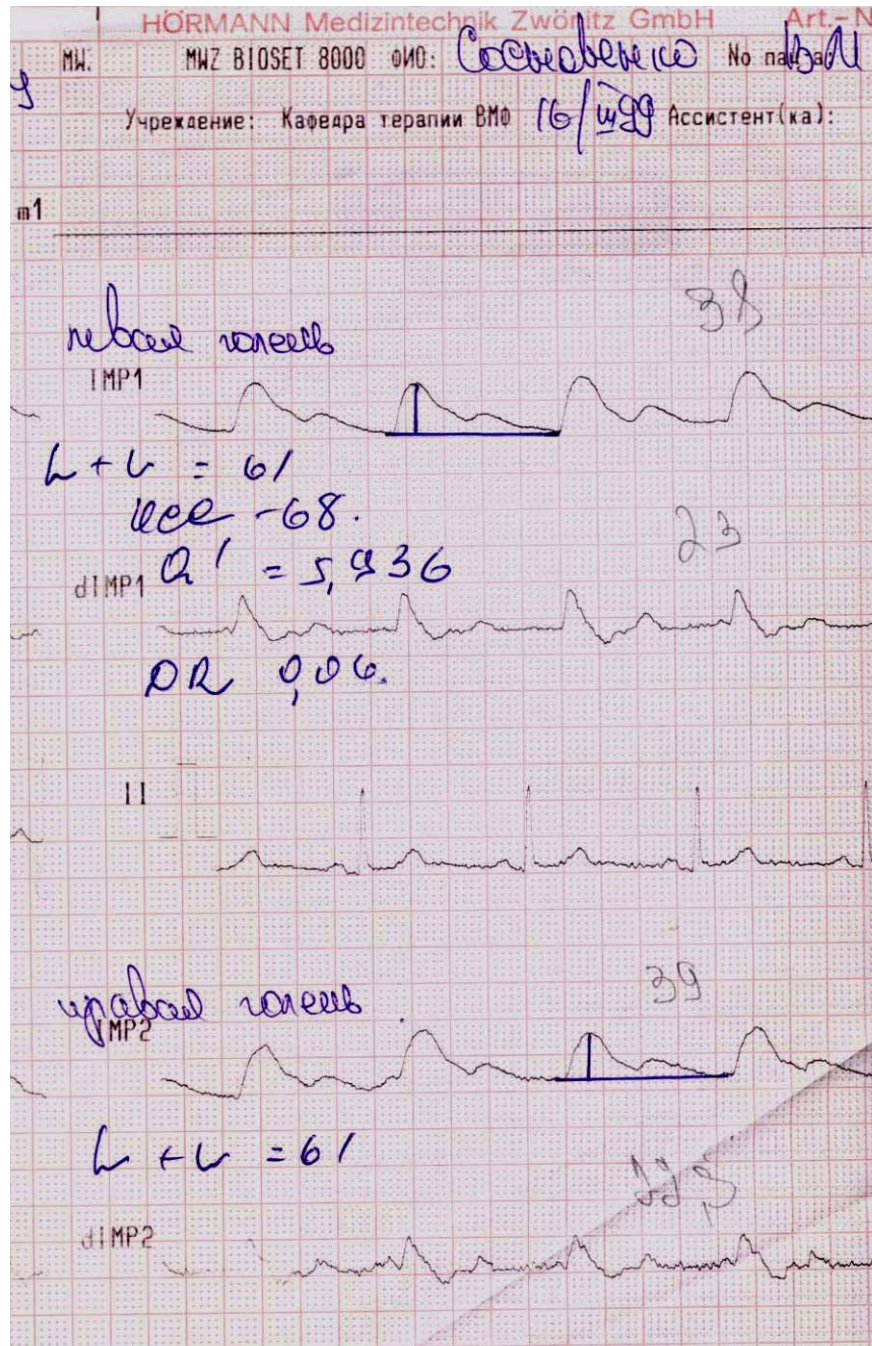 HÖRMANN Medizintechnik Zwönitz GmbH Art.-N
MW. MWZ BIOSET 8000 ФИО: No
Учреждение: Кафедра терапии ВМФ 16/III 99 Ассистент(ка):
m1
38
левая голень
IMP1
L + L = 61
ЧСС -68.
23
Q' = 5,936
dIMP1
DR 0,06.
II
39
правая голень
IMP2
L + L = 61
dIMP2